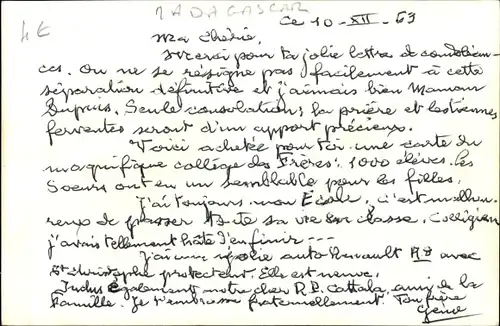 4€
MADAGASCAR
Ce 10-XII-63
Ma chérie,
Merci pour ta jolie lettre de condoléan-
ces. On ne se résigne pas facilement à cette
séparation définitive et j'aimais bien Maman
Dupuis. Seule consolation; la prière et les tiennes
ferventes seront d'un apport précieux.
Voici achetée pour toi une carte du
magnifique collège des Frères: 1000 élèves. les
Soeurs ont eu un semblable pour les filles.
J'ai toujours mon École, c'est malheu-
reux de passer toute sa vie en classe.
j'avais tellement hâte d'en finir ---
J'ai une jolie auto Renault avec
St Christophe protecteur. Elle est neuve.
également notre cher R.P. Cattala, ami de la
famille. Je t'embrasse fraternellement. Ton frère